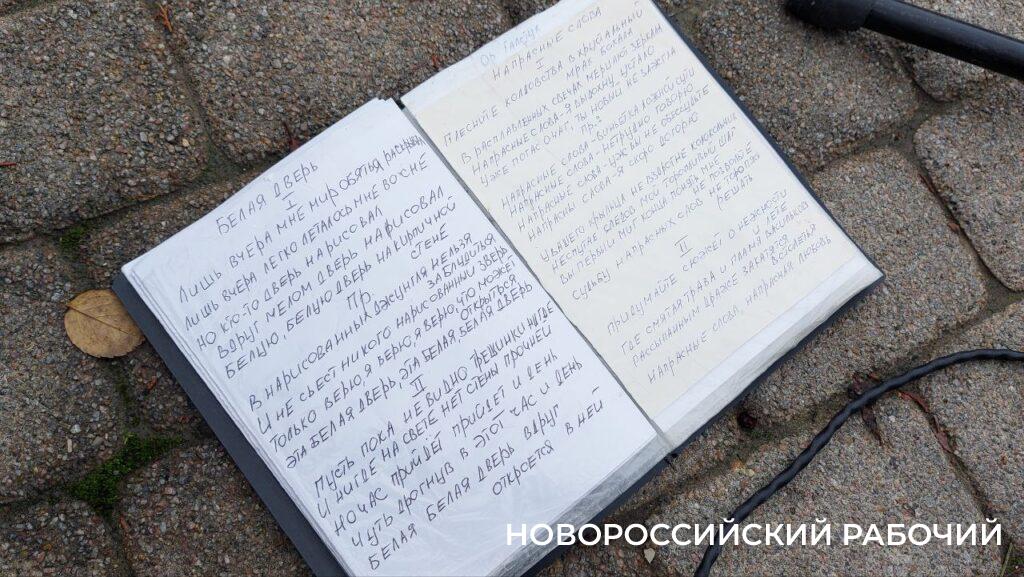 БЕЛАЯ ДВЕРЬ
I
ЛИШЬ ВЧЕРА МНЕ МИР ОБЪЯТЬЯ
ЛИШЬ ВЧЕРА ЛЕГКО ЛЕТАЛОСЬ МНЕ ВО СНЕ
НО КТО-ТО ДВЕРЬ НАРИСОВАЛ
ВДРУГ МЕЛОМ ДВЕРЬ НАРИСОВАЛ
БЕЛУЮ, БЕЛУЮ ДВЕРЬ НА КИРПИЧНОЙ
СТЕНЕ
ПР
В НАРИСОВАННЫХ ДЖУНГЛЯХ НЕЛЬЗЯ
ЗАБЛУДИТЬСЯ
И НЕ СЪЕСТ НИКОГО НАРИСОВАННЫЙ ЗВЕРЬ
ТОЛЬКО ВЕРЮ, Я ВЕРЮ, Я ВЕРЮ, ЧТО МОЖЕТ
ОТКРЫТЬСЯ
ЭТА БЕЛАЯ ДВЕРЬ, ЭТА БЕЛАЯ ДВЕРЬ
II
ПУСТЬ ПОКА НЕ ВИДНО ТРЕЩИНКИ НИГДЕ
И НИГДЕ НА СВЕТЕ НЕТ СТЕНЫ ПРОЧНЕЙ
НО ЧАС ПРИЙДЕТ ПРИЙДЕТ И ДЕНЬ
ЧУТЬ ДРОГНУВ В ЭТОТ ЧАС И ДЕНЬ
БЕЛАЯ БЕЛАЯ ДВЕРЬ ВДРУГ
ОТКРОЕТСЯ В НЕЙ –
НАПРАСНЫЕ СЛОВА
I
ПЛЕСНИТЕ КОЛДОВСТВА В ХРУСТАЛЬНЫЙ
МРАК БОКАЛА
В РАСПЛАВЛЕННЫХ СВЕЧАХ МЕРЦАЮТ ЗЕРКАЛА
НАПРАСНЫЕ СЛОВА - Я ВЫДОХНУ УСТАЛО
УЖЕ ПОГАС ОЧАГ, ТЫ НОВЫЙ НЕ ЗАЖГЛА
ПР.
НАПРАСНЫЕ СЛОВА - ВИНЬЕТКА ЛОЖНОЙ СУТИ
НАПРАСНЫЕ СЛОВА - НЕТРУДНО ГОВОРЮ
НАПРАСНЫЕ СЛОВА - УЖ ВЫ НЕ ОБЕССУДЬТЕ
НАПРАСНЫ СЛОВА - Я СКОРО ДОГОРЮ
У ВАШЕГО КРЫЛЬЦА НЕ ВЗДРОГНЕТ КОЛОКОЛЬЧИК
НЕ СПУТАЕТ СЛЕДОВ МОЙ ТОРОПЛИВЫЙ ШАГ
ВЫ ПЕРВЫЙ МИГ КОНЦА ПОНЯТЬ МНЕ
СУДЬБУ НАПРАСНЫХ СЛОВ НЕ
РЕШАТЬ
II
ПРИДУМАЙТЕ СЮЖЕТ О НЕЖНОСТИ
И ЛЕТЕ
ГДЕ СМЯТАЯ ТРАВА И ПЛАМЯ ВАСИЛЬКОВ
РАССЫПАННЫМ ДРАЖЕ ЗАКАТЯТСЯ В
СОЗВЕЗДЬЯ
НАПРАСНЫЕ СЛОВА, НАПРАСНАЯ ЛЮБОВЬ
НОВОРОССИЙСКИЙ РАБОЧИЙ